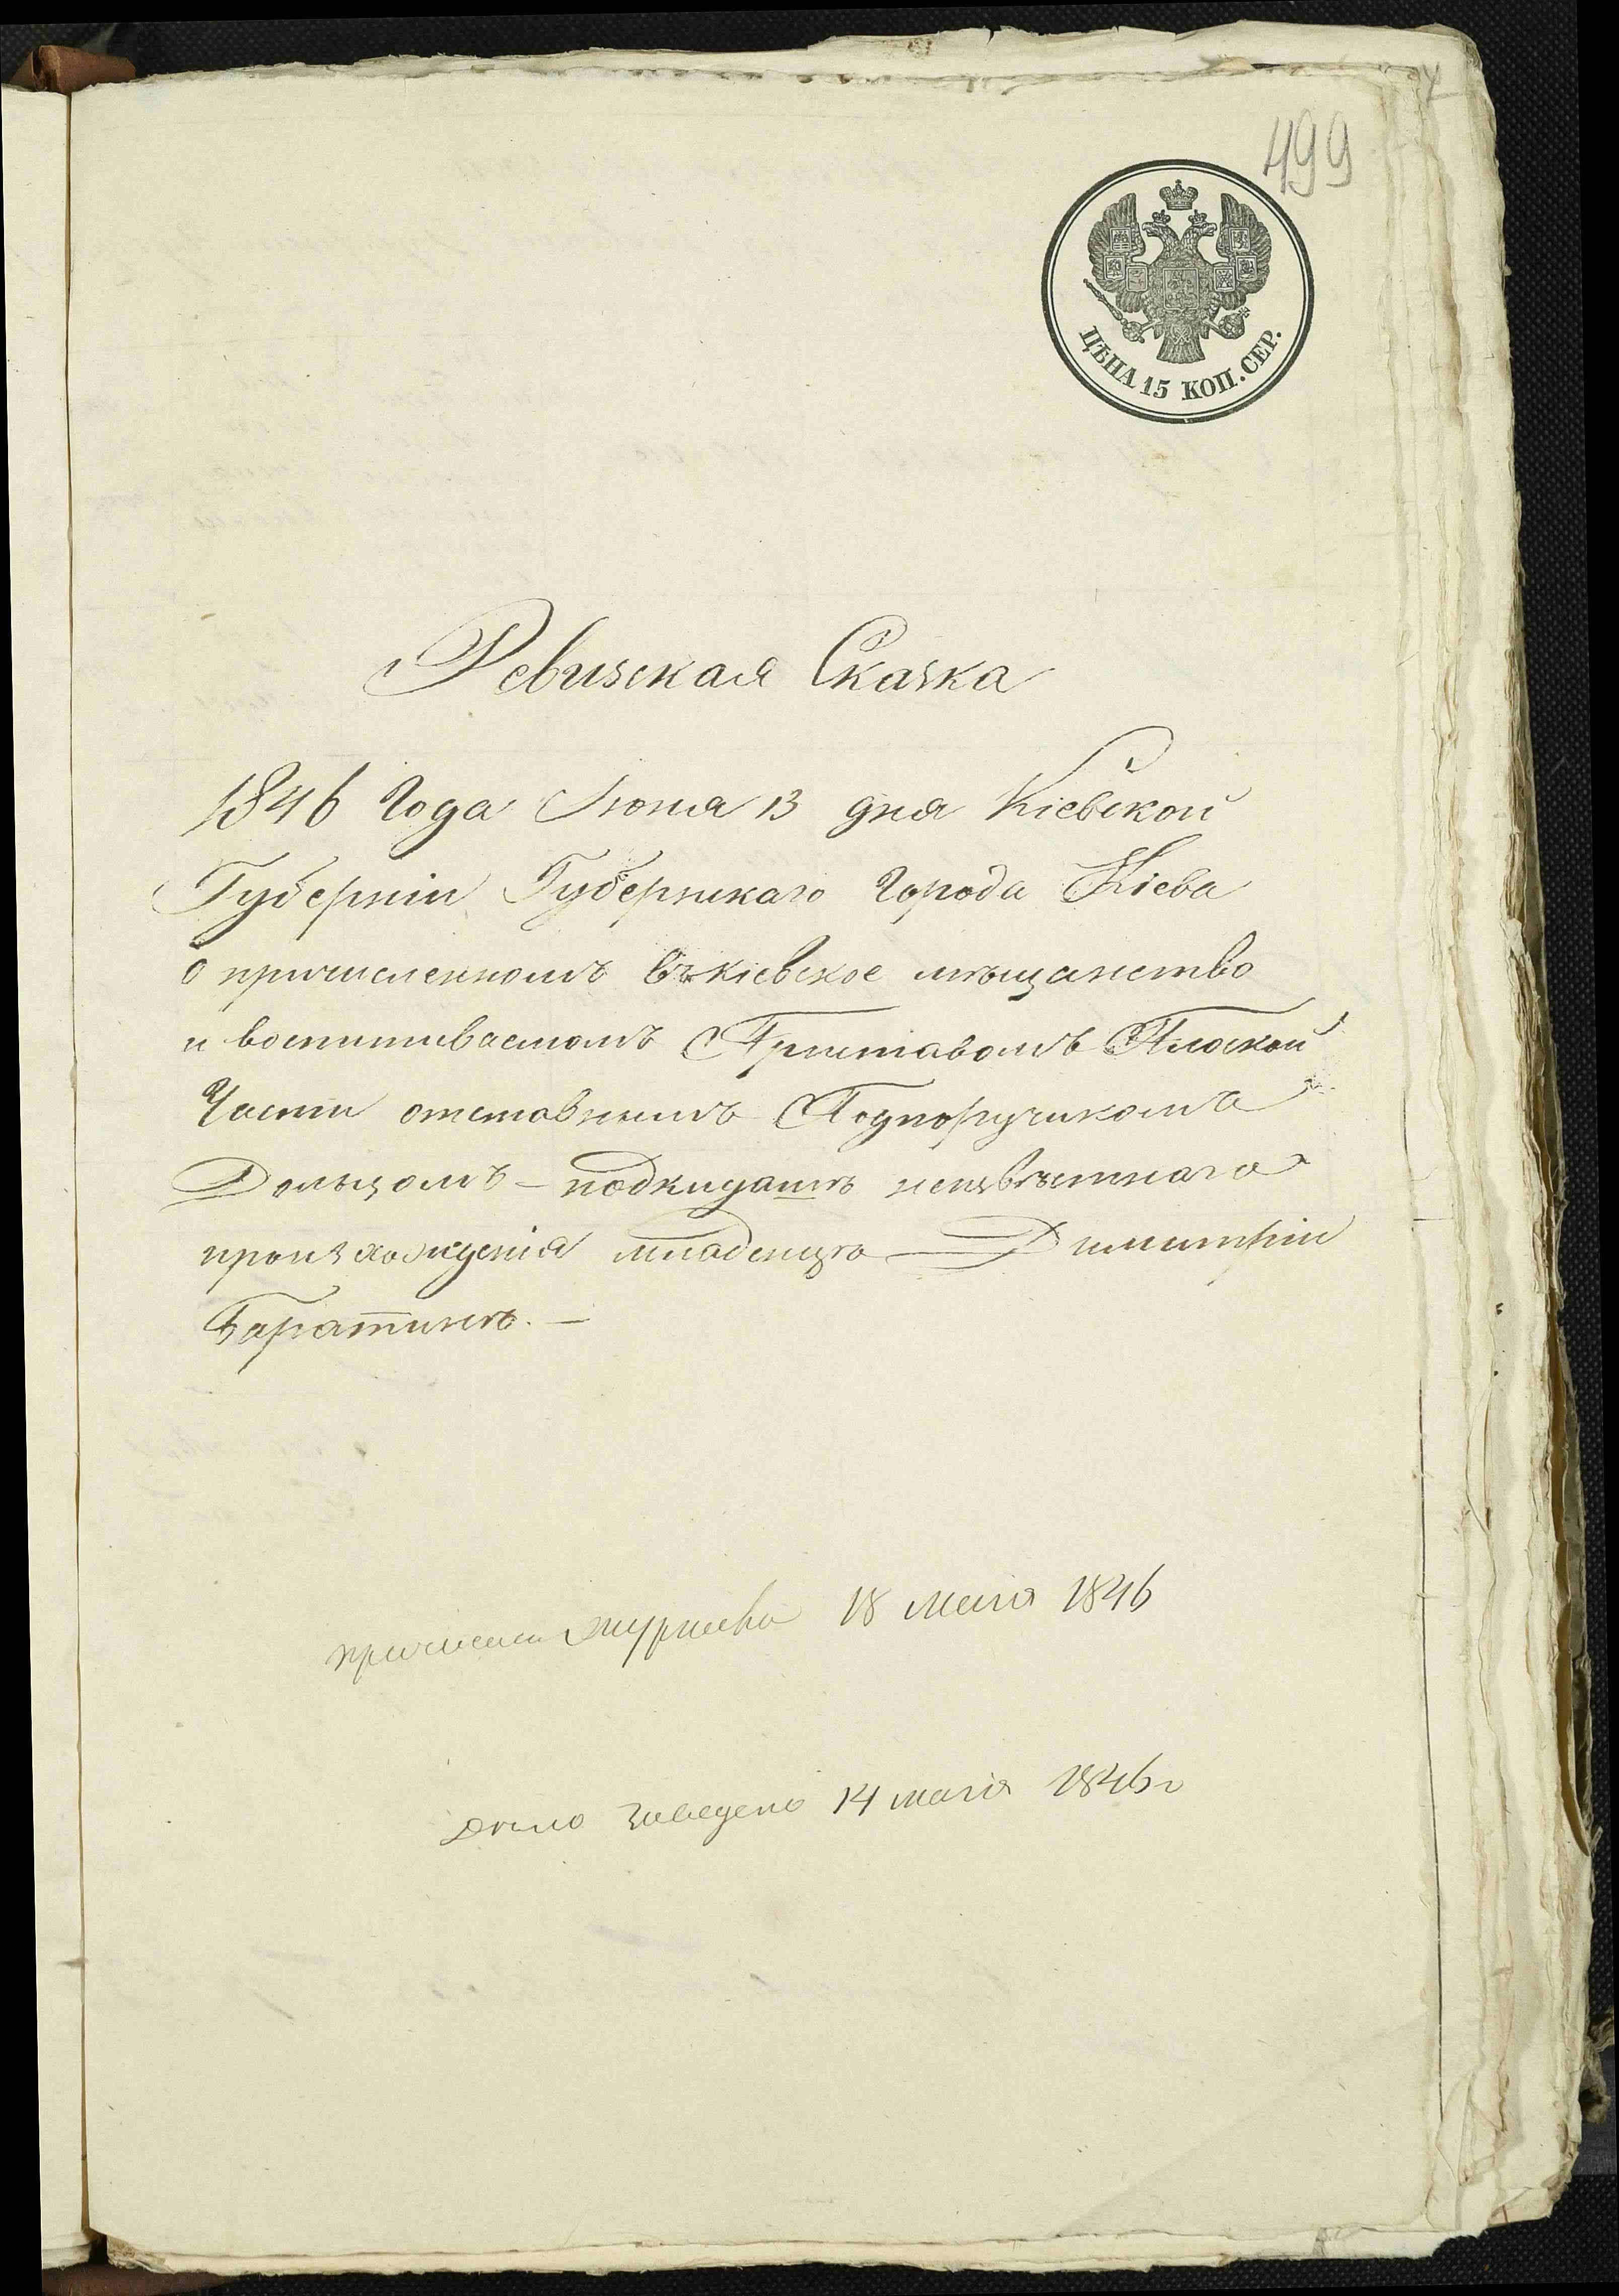 499
ЦѢНА 15 КОП. СЕР.
Ревизская Сказка
1846 Года Июня 13 дня Кіевской
Губерніи Губернскаго Города Кіева
о причисленномъ въ кіевское мѣщанство
и воспитиваемомъ Приставомъ Плоской
Части отставнымъ Подпоручикомъ
подкидашѣ неизвѣстнаго
произхожденія младенцѣ Димитріи
Баратинѣ. —
18 мая 1846
дѣло заведено 14 мая 1846 г